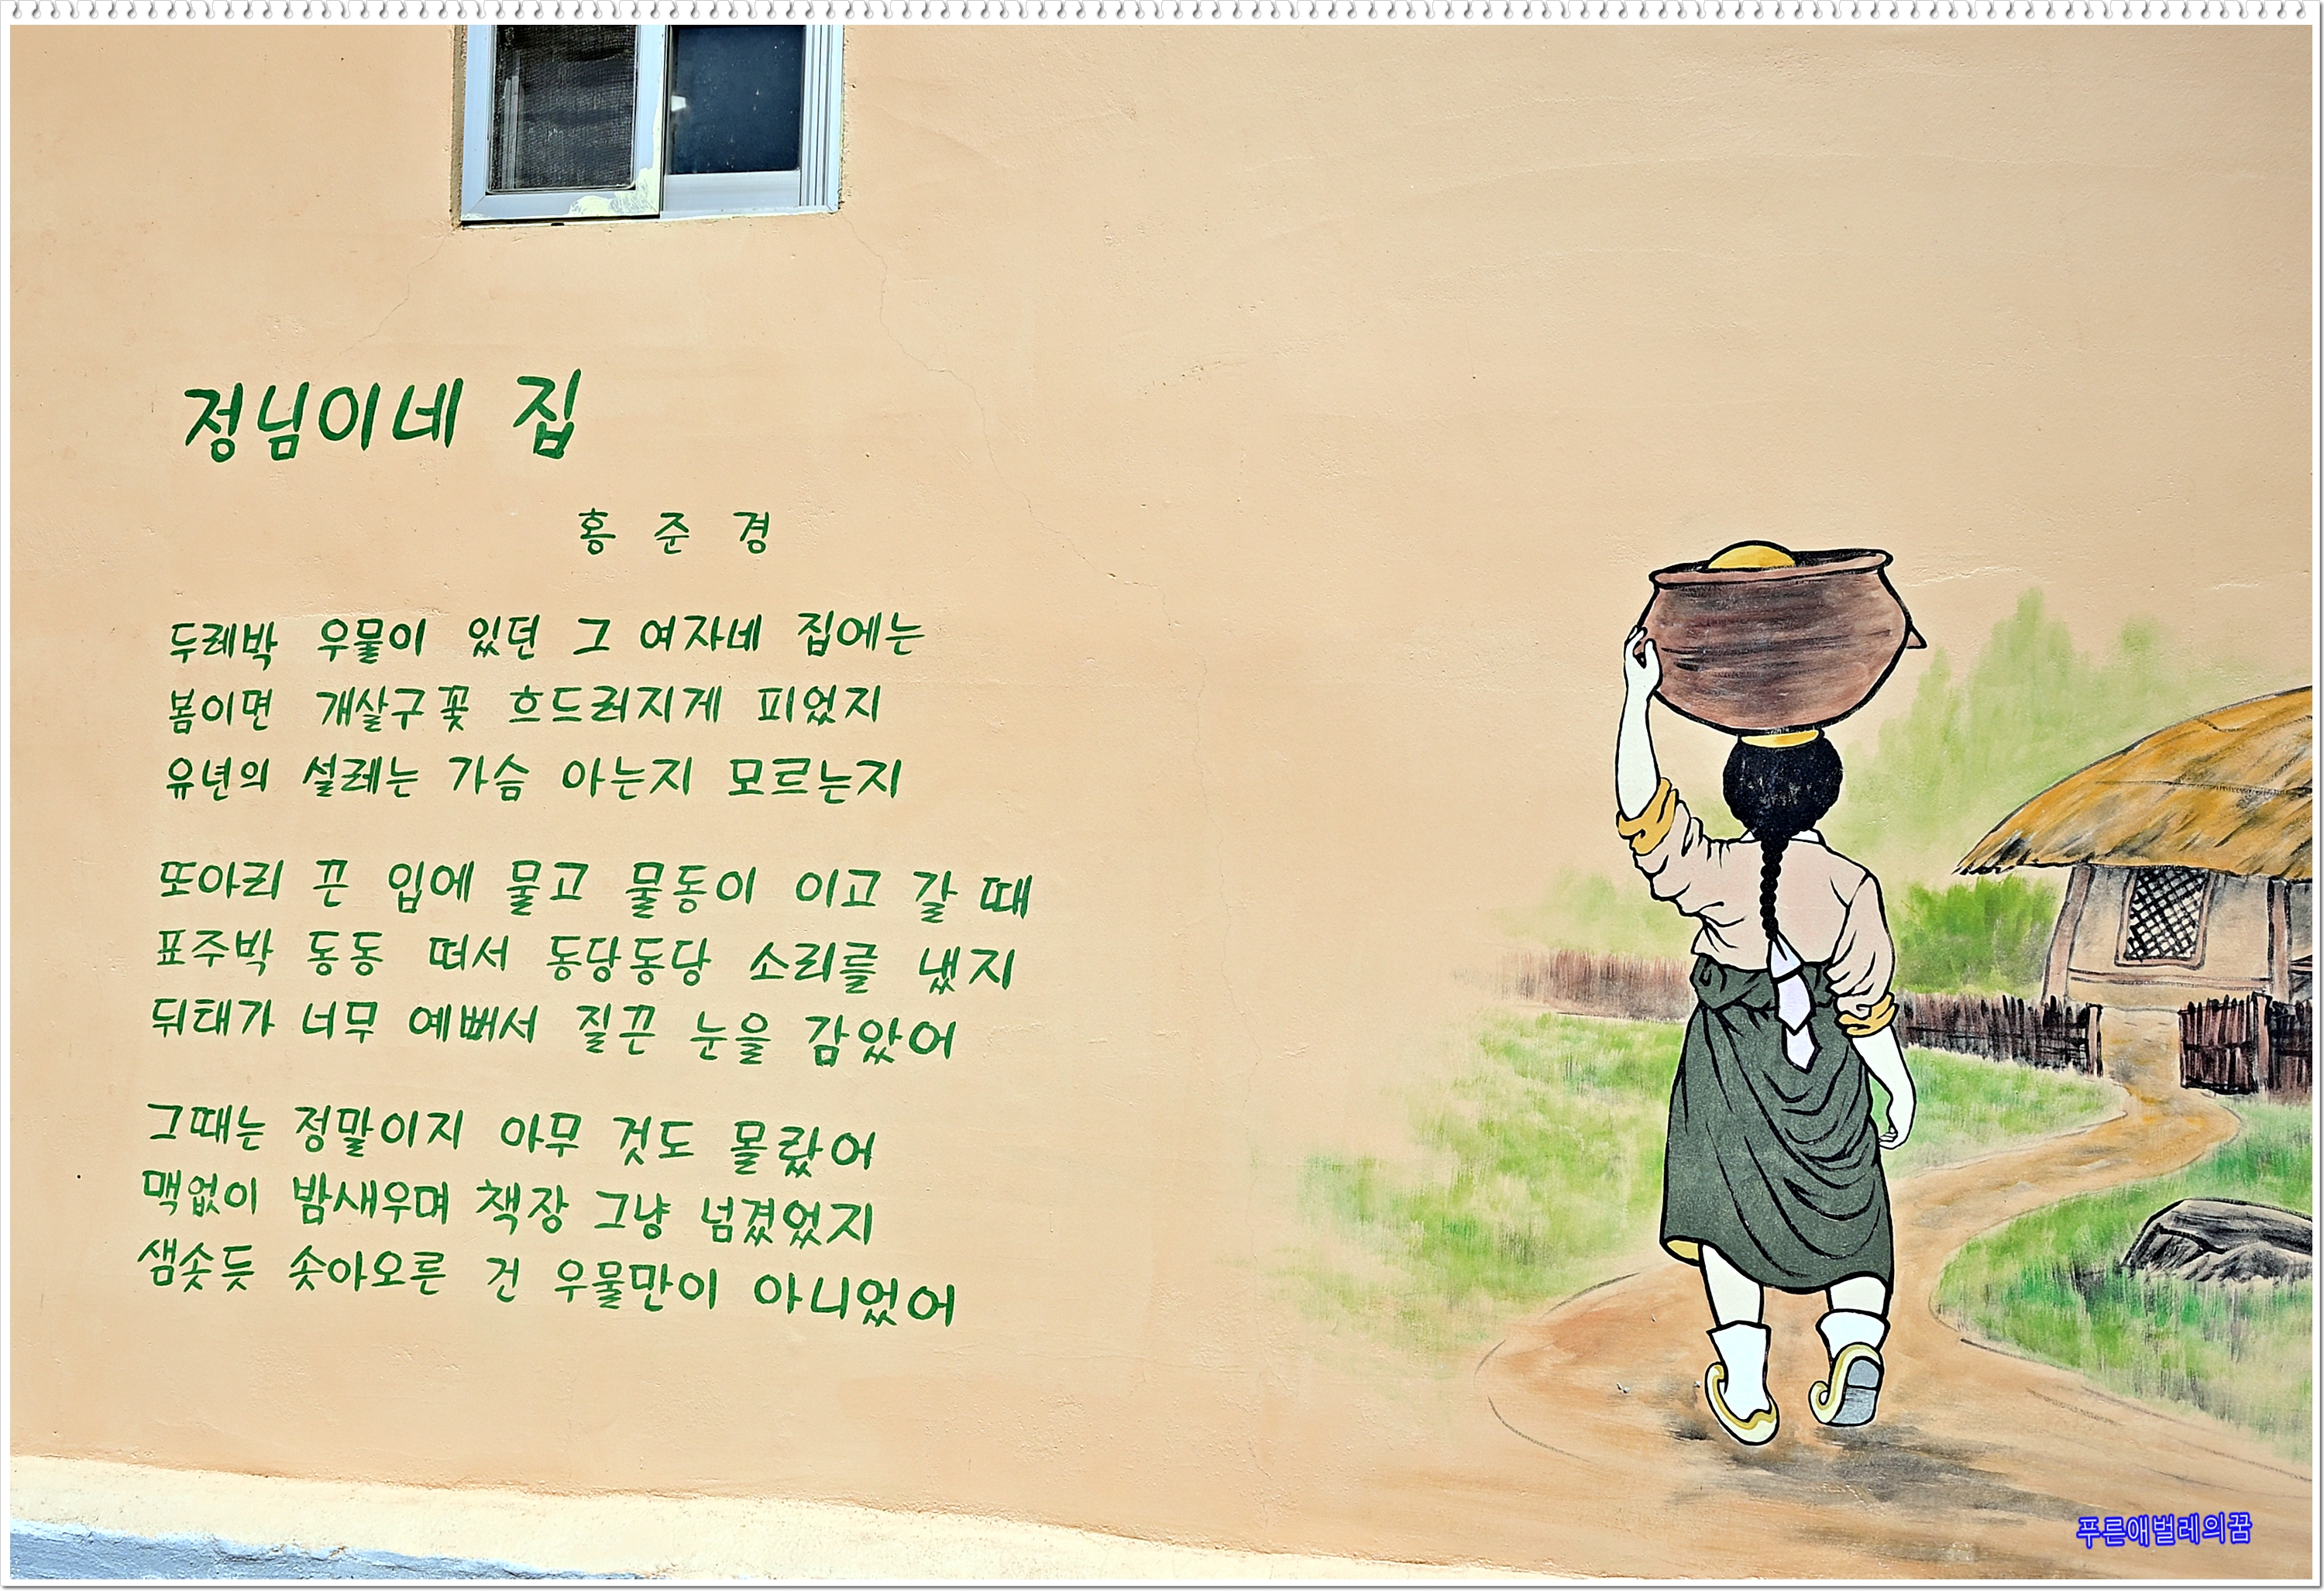 정님이네 집
홍 준 경
두레박 우물이 있던 그 여자네 집에는
봄이면 개살구꽃 흐드러지게 피었지
유년의 설레는 가슴 아는지 모르는지
또아리 끈 입에 물고 물동이 이고 갈 때
표주박 동동 떠서 동당동당 소리를 냈지
뒤태가 너무 예뻐서 질끈 눈을 감았어
그때는 정말이지 아무 것도 몰랐어
맥없이 밤새우며 책장 그냥 넘겼었지
샘솟듯 솟아오른 건 우물만이 아니었어
푸른애벌레의꿈